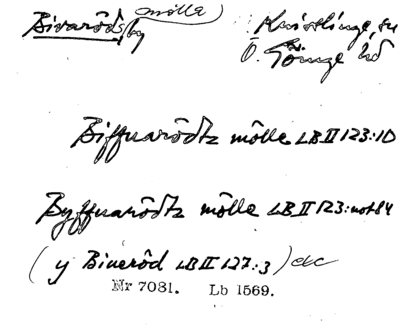 Bivaröds by (mölle) Knislinge, sn
Ö. Göinge hd
Biffuarödtz mölle LB II 123:10
Byffuarödtz mölle LB II 123: not 84
(y Biueröd LB II 127:3) etc
Nr 7081. Lb 1569.